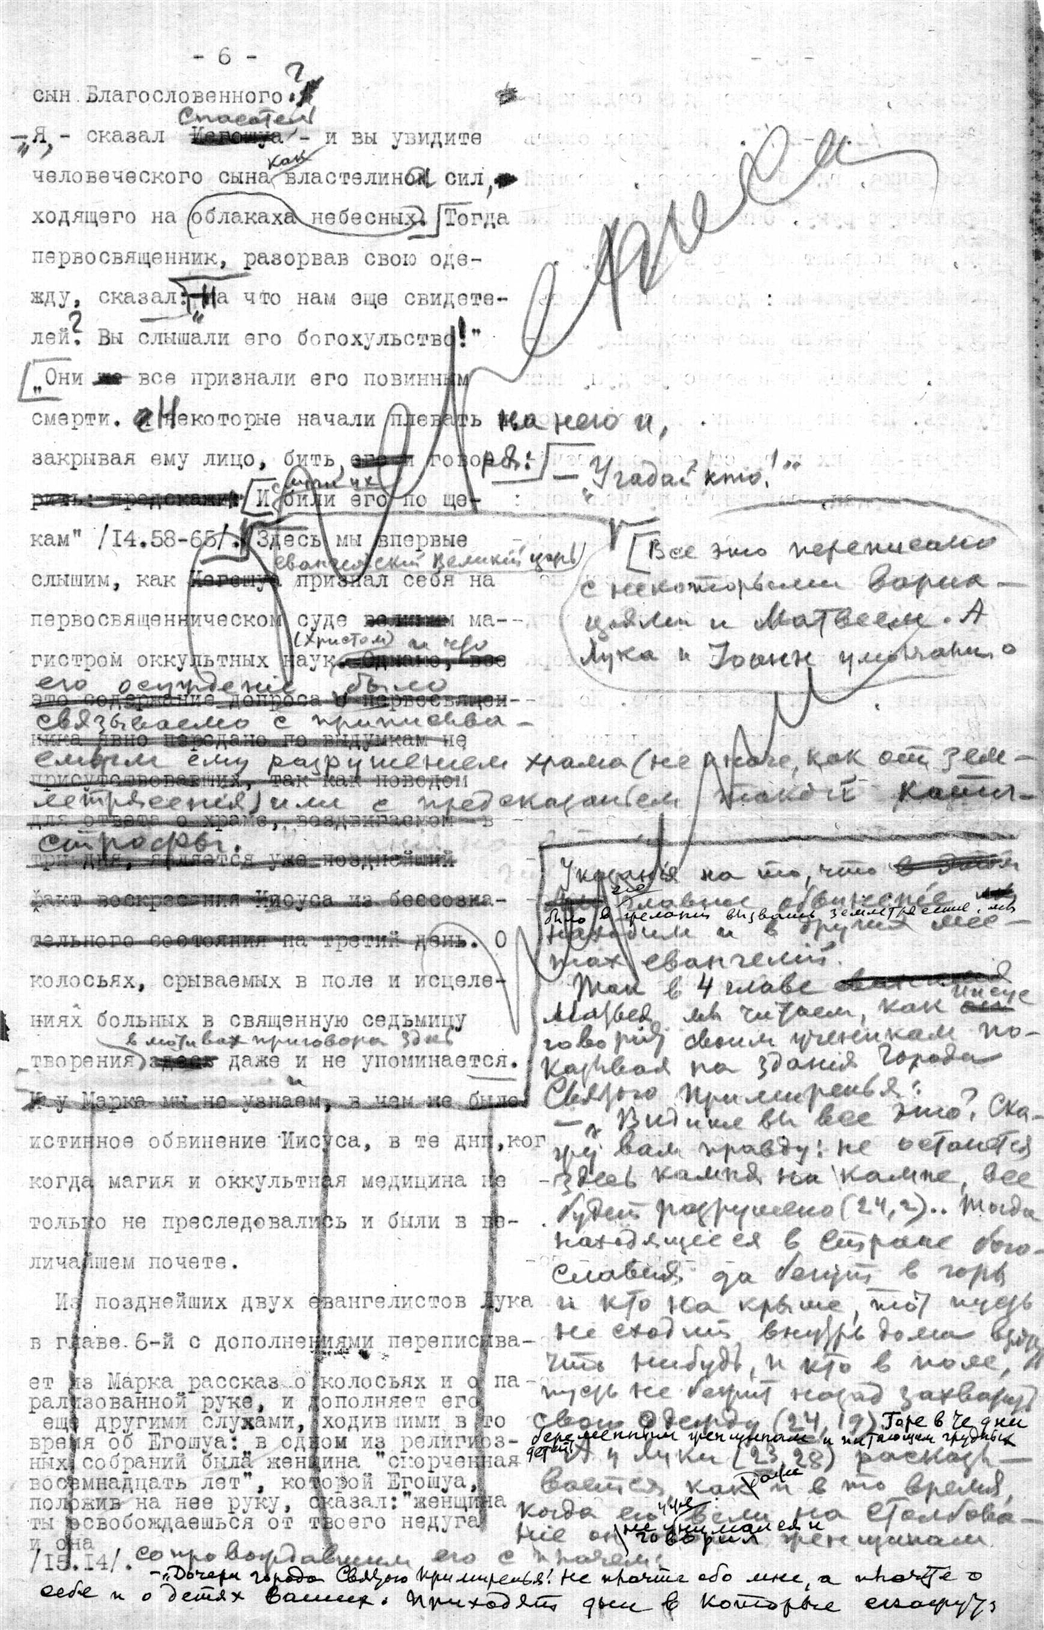 - 6 -
сын Благословенного?
Спаситель
— „Я, - сказал Иегошуа - и вы увидите
как
человеческого сына властелином сил,
ходящего на облаках небесных. Тогда
первосвященник, разорвав свою оде-
жду, сказал: „На что нам еще свидете-
лей? Вы слышали его богохульство!"
„Они же все признали его повинным
смерти. Некоторые начали плевать на него и,
закрывая ему лицо, бить его и говоря:
— „Угадай кто!"
рить: предскажи! И били его по ще-
кам" /14.58-65/. Здесь мы впервые
евангельский Великий царь
слышим, как Иегошуа признал себя на
первосвященническом суде великим ма-
(Христом) и что
гистром оккультных наук. Однако, все
его осуждение было
это содержание допроса у первосвящен-
связываемо с приписыва-
ника явно передано по выдумкам не
емым ему разрушением храма (не иначе, как от зем-
присутствовавших, так как поводом
летрясения) или с предсказанием такой ката-
для ответа о храме, воздвигаемом в
строфы.
три дня, является уже позднейший
факт воскресения Иисуса из бессозна-
тельного состояния на третий день. О
колосьях, срываемых в поле и исцеле-
ниях больных в священную седьмицу
в мотивах приговора здесь
творения здесь даже и не упоминается.
И у Марка мы не узнаем, в чем же было
истинное обвинение Иисуса, в те дни, ког
когда магия и оккультная медицина не
только не преследовались и были в ве-
личайшем почете.
Из позднейших двух евангелистов Лука
в главе 6-й с дополнениями переписыва-
ет из Марка рассказ о колосьях и о па-
рализованной руке, и дополняет его
еще другими слухами, ходившими в то
время об Егошуа: в одном из религиоз-
ных собраний была женщина "скорченная
восемнадцать лет", которой Егошуа,
положив на нее руку, сказал: "женщина
ты освобождаешься от твоего недуга
и она
/15.14/.
Все это переписано
с некоторыми вариа-
циями и Матвеем. А
Лука и Иоанн умолчали о
Указания на то, что в этом
главное обвинение
было в желании вызвать землетрясение, мы
находим и в других мес-
тах евангелий.
Так в 4 главе
Матвея мы читаем, как Иисус
говорит своим ученикам по-
казывая на здания Города
Святого Примиренья:
— „Видите вы все это? Ска-
жу вам правду: не останется
здесь камня на камне, все
будет разрушено (24,2).. Тогда
находящиеся в стране бого-
славия да бегут в горы
и кто на крыше, тот пусть
не сходит внутрь дома взять
что нибудь, и кто в поле,
пусть не бежит назад захватить
свою одежду (24,19) Горе в те дни
беременным женщинам и питающим грудных
детей"
А у Луки (23,28) расска-
вается как и в то время,
когда его вели на столбова-
ние он говорил женщинам
сопровождавшим его с плачем:
— „Дочери города Святого Примиренья! Не плачте обо мне, а плачте о
себе и о детях ваших. Приходят дни в которые скажут: